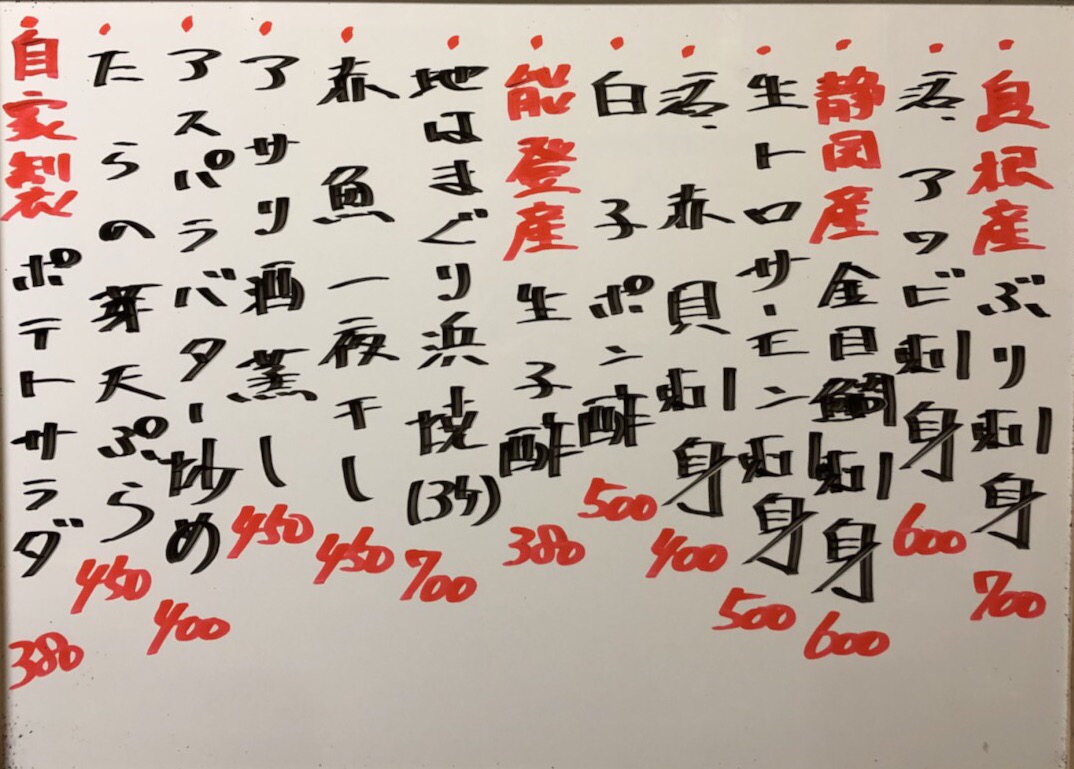 ・島根産ぶり刺身 700
・活アワビ刺身 600
・静岡産金目鯛刺身 600
・生トロサーモン刺身 500
・活赤貝刺身 400
・白子ポン酢 500
・能登産生子酢 380
・地はまぐり浜焼(3ケ) 700
・赤魚一夜干し 450
・アサリ酒蒸し 450
・アスパラバター炒め 400
・たらの芽天ぷら 450
・自家製ポテトサラダ 380